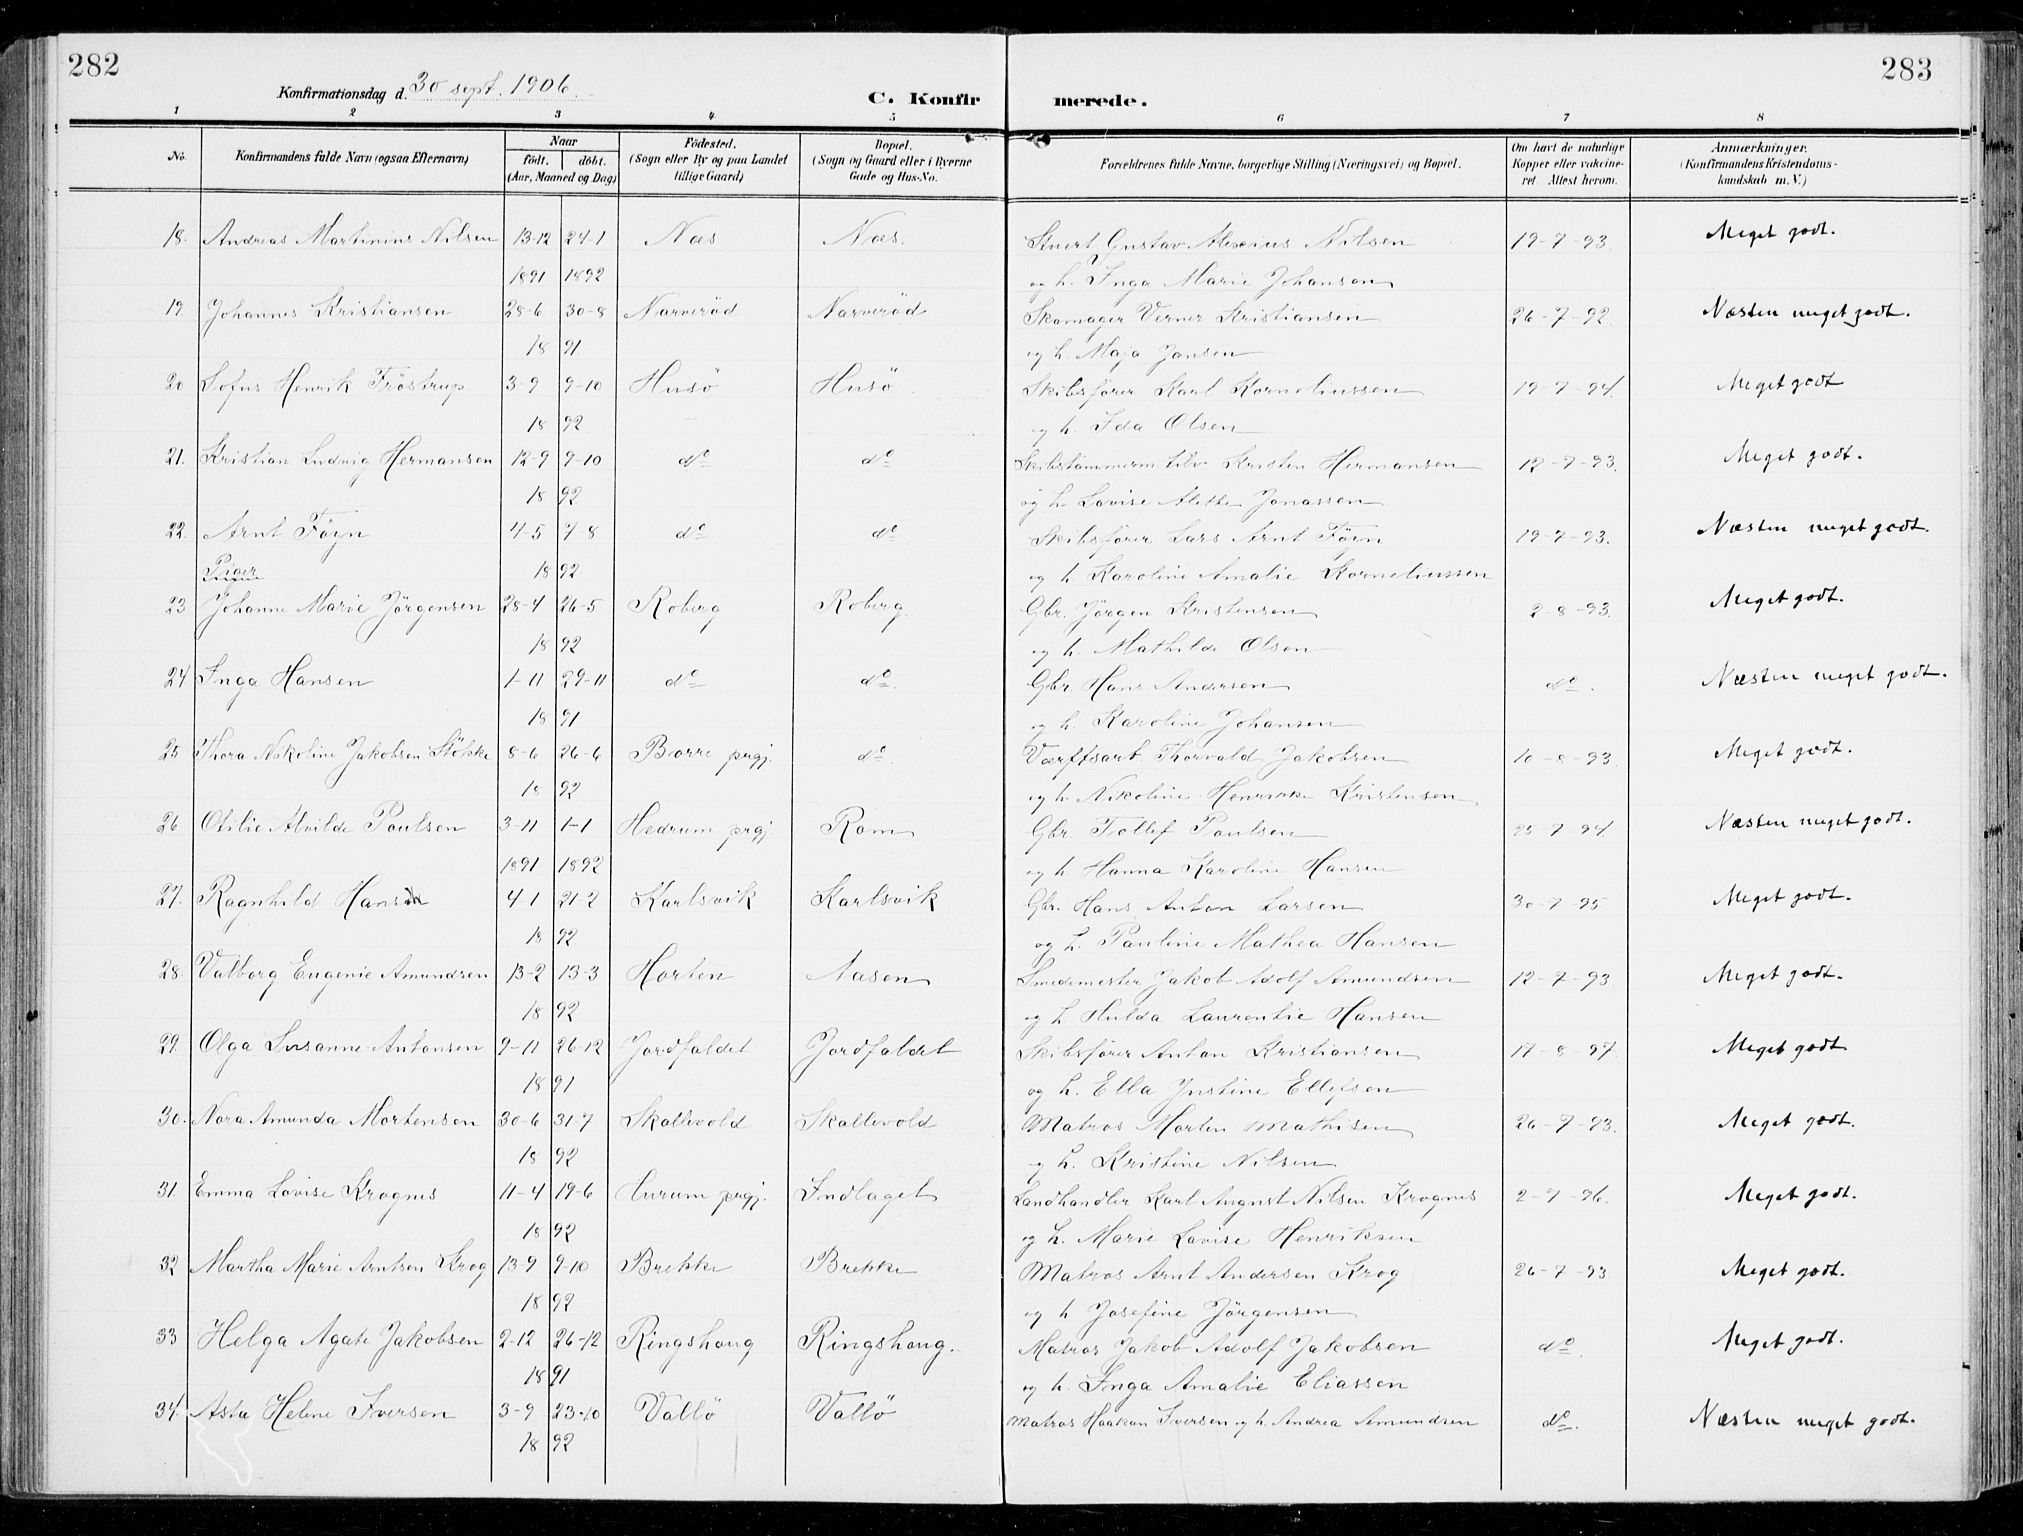 282
283
Konfirmationsdag d. 30 sept. 1906.
C. Konfir merede.
1 2 3 4 5 6 7 8
No. Konfirmandens fulde Navn (ogsaa Efternavn) Naar födt. döbt. (Aar, Maaned og Dag) Födested. (Sogn eller By og paa Landet tillige Gaard) Bopæl. (Sogn og Gaard eller i Byerne Gade og Hus-No. Forældrenes fulde Navne, borgerlige Stilling (Næringsvei) og Bopæl. Om havt de naturlige Kopper eller vakcineret Attest herom. Anmærkninger. (Konfirmandens Kristendomskundskab m. V.)
18. Andreas Martinius Nilsen 13-12 24-1 Næs Næs. Stuert Gustav Alexius Nilsen 19-7-93. Meget godt.
1891 1892 og h. Inga Marie Johansen
19. Johannes Kristiansen 28-6 30-8 Narverød Narverød Skomager Verner Kristiansen 26-7-92. Næsten meget godt.
18 91 og h. Maja Jansen
20 Sofus Henrik Fröstrup 3-9 9-10 Husö Husö Skibsfører Karl Korneliussen 19-7-94. Meget godt
18 92 og h. Ida Olsen
21. Kristian Ludvig Hermansen 12-9 9-10 do do Skibstömmerm. Kristen Hermansen 12-7-93. Meget godt.
18 92 og h. Lovise Alethe Jonassen
22. Arnt Föyn 4-5 7-8 do do Skibsfører Lars Arnt Föyn 19-7-93. Næsten meget godt.
Piger 18 92 og h. Karoline Amalie Korneliussen
23 Johanne Marie Jörgensen 28-4 26-5 Roberg Roberg. Gbr. Jörgen Kristensen 2-8-93. Meget godt.
18 92 og h. Mathilde Olsen
24 Inga Hansen 1-11 29-11 do do. Gbr. Hans Andersen do. Næsten meget godt.
18 91 og h. Karoline Johansen
25 Thora Nikoline Jakobsen Stökke 8-6 26-6 Borre prgj. do Værftsarb. Thorvald Jakobsen 10-8-93. Meget godt.
18 92 og h. Nikoline Henrikke Kristensen
26 Otilie Alvilde Paulsen 3-11 1-1 Hedrum prgj. Rom Gbr. Tollef Paulsen 25-7-94. Næsten meget godt.
1891 1892 og h Hanna Karoline Hansen
27. Ragnhild Hansen 4-1 21-2 Karlsvik Karlsvik Gbr. Hans Anton Larsen 30-7-95 Meget godt.
18 92 og h. Pauline Mathea Hansen
28. Valborg Eugenie Amundsen 13-2 13-3 Horten Aasen Smedemester Jakob Adolf Amundsen 12-7-93. Meget godt.
18 92 og h. Hulda Laurentie Hansen
29. Olga Susanne Antonsen 9-11 26-12 Jordfaldet Jordfaldet Skibsfører Anton Kristiansen 17-8-97. Meget godt
18 91 og h. Ella Justine Ellefsen
30. Nora Amunda Mortensen 30-6 31-7 Skallevold Skallevold Matros Morten Mathisen 26-7-93. Meget godt.
18 92 og h. Kristine Nilsen
31. Emma Lovise Krognes 11-4 19-6 Hurum prgj. Indlaget Landhandler Karl August Nilsen Krognes 2-7-96. Meget godt.
18 92 og h. Marie Lovise Henriksen
32 Martha Marie Arntsen Krog 13-9 9-10 Brekke Brekke Matros Arnt Andersen Krog 26-7-93 Meget godt.
18 92 og h Josefine Jörgensen
33 Helga Agate Jakobsen 2-12 26-12 Ringshaug Ringshaug. Matros Jakob Adolf Jakobsen do. Meget godt.
18 91 og h. Inga Amalie Eliassen
34. Asta Helene Iversen 3-9 23-10 Vallö Vallö Matros Haakon Iversen og h. Andrea Amundsen do. Næsten meget godt.
18 92